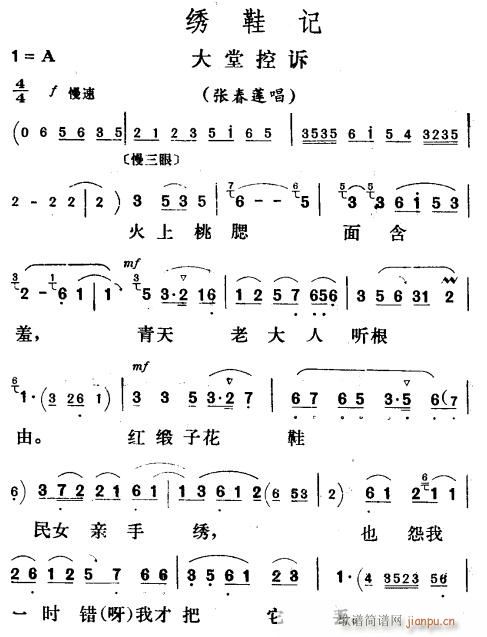 绣鞋记
大堂控诉
1=A
4/4 f 慢速
(张春莲唱)
(0 6 5 6 3 5 | 2 1 2 3 5 i 6 5 | 3535 6 i 5 4 3235
〔慢三眼〕
2 - 2 2 ) 3 5 3 5 6 - - 5 3 . 3 6 i 5 3
火上桃腮 面含
mf
2 - 6 1 | 1 5 3·2 16 | 1 2 5 7 656 | 3 5 6 31 2
羞， 青天 老大人听根
mf
1·( 3 26 1 ) | 3 3 5 3·2 7 | 6 7 6 5 3·5 6( 7
由。 红缎子花 鞋
6 ) 3 7 2 2 1 6 1 | 1 3 6 1 2 ( 6 53 | 2 ) 6 1 2 1
民女亲手 绣， 也怨我
2 6 1 2 5 7 6 6 | 5 1 2 6 1 2 | 1·( 4 3523 56
一时错(呀)我才把
歌谱简谱网
jianpu.cn